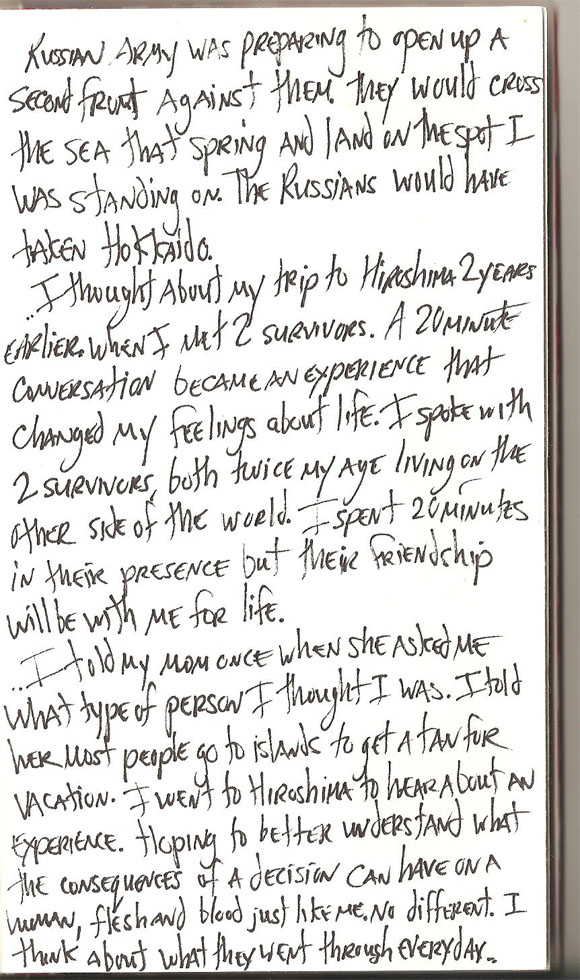 Russian Army was preparing to open up a
second front against them. They would cross
the sea that spring and land on the spot I
was standing on. The Russians would have
taken Hokkaido.
...I thought about my trip to Hiroshima 2 years
earlier. When I met 2 survivors. A 20 minute
conversation became an experience that
changed my feelings about life. I spoke with
2 survivors, both twice my age living on the
other side of the world. I spent 20 minutes
in their presence but their friendship
will be with me for life.
...I told my mom once when she asked me
what type of person I thought I was. I told
her most people go to islands to get a tan for
vacation. I went to Hiroshima to hear about an
experience. Hoping to better understand what
the consequences of a decision can have on a
human, flesh and blood just like me. No different. I
think about what they went through everyday...